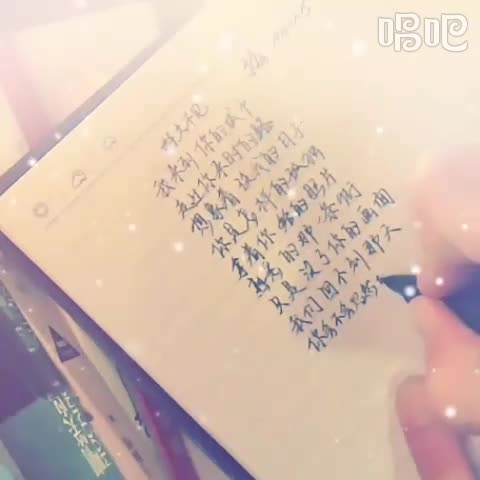 唱吧
好久不见
我来到 你的城市
走过你来时的路
想象着 没我的日子
你是怎样的孤独
拿着你 给的照片
熟悉的那一条街
只是没了你的画面
我们回不到那天
你会不会忽然